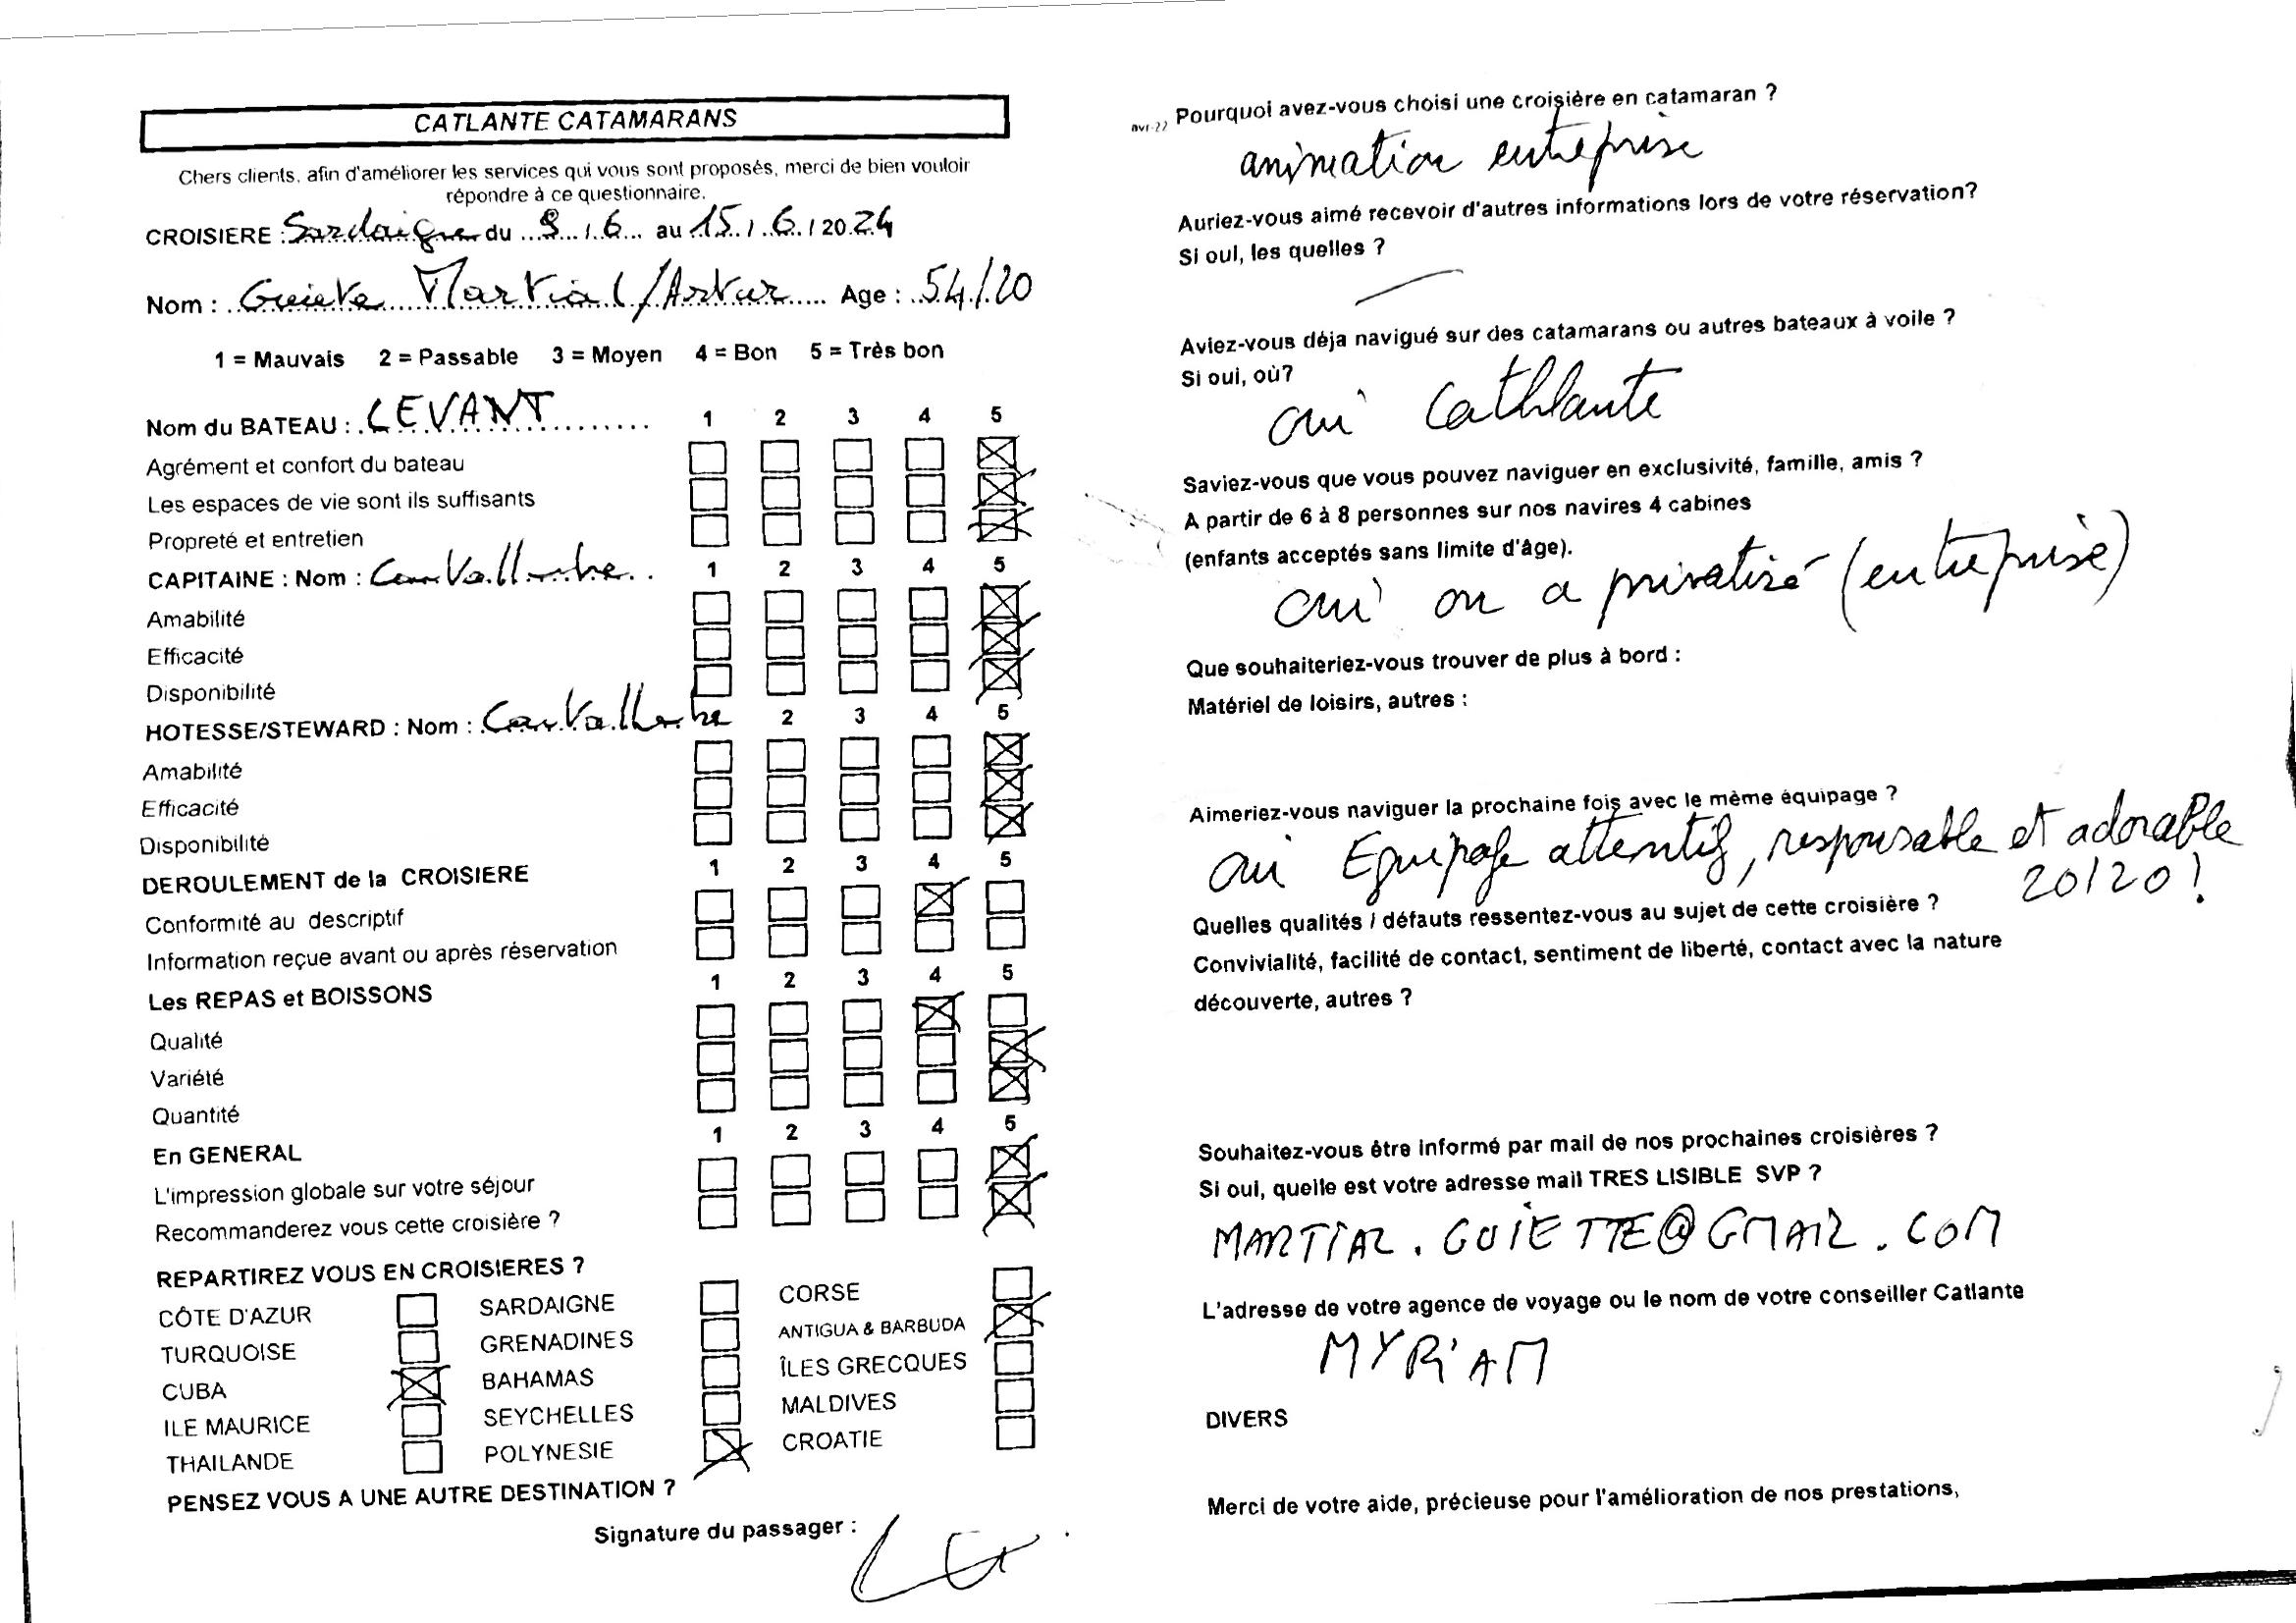 CATLANTE CATAMARANS
Chers clients, afin d'améliorer les services qui vous sont proposés, merci de bien vouloir
répondre à ce questionnaire.
CROISIERE : Sardaigne du 9 / 6 au 15 / 6 / 2024
Nom : Guiette Martial / Artur Age : 54 / 20
1 = Mauvais 2 = Passable 3 = Moyen 4 = Bon 5 = Très bon
Nom du BATEAU : LEVANT 1 2 3 4 5
Agrément et confort du bateau
Les espaces de vie sont ils suffisants
Propreté et entretien
CAPITAINE : Nom : 1 2 3 4 5
Amabilité
Efficacité
Disponibilité
HOTESSE/STEWARD : Nom : 2 3 4 5
Amabilité
Efficacité
Disponibilité
DEROULEMENT de la CROISIERE 1 2 3 4 5
Conformité au descriptif
Information reçue avant ou après réservation
Les REPAS et BOISSONS 1 2 3 4 5
Qualité
Variété
Quantité
En GENERAL 1 2 3 4 5
L'impression globale sur votre séjour
Recommanderez vous cette croisière ?
REPARTIREZ VOUS EN CROISIERES ?
CÔTE D'AZUR SARDAIGNE CORSE
TURQUOISE GRENADINES ANTIGUA & BARBUDA
CUBA BAHAMAS ÎLES GRECQUES
ILE MAURICE SEYCHELLES MALDIVES
THAILANDE POLYNESIE CROATIE
PENSEZ VOUS A UNE AUTRE DESTINATION ?
Signature du passager :
avr-22 Pourquoi avez-vous choisi une croisière en catamaran ?
animation entreprise
Auriez-vous aimé recevoir d'autres informations lors de votre réservation?
Si oui, les quelles ?
Aviez-vous déja navigué sur des catamarans ou autres bateaux à voile ?
Si oui, où?
oui Cathlante
Saviez-vous que vous pouvez naviguer en exclusivité, famille, amis ?
A partir de 6 à 8 personnes sur nos navires 4 cabines
(enfants acceptés sans limite d'âge).
oui on a privatisé (entreprise)
Que souhaiteriez-vous trouver de plus à bord :
Matériel de loisirs, autres :
Aimeriez-vous naviguer la prochaine fois avec le même équipage ?
oui Equipage attentif, responsable et adorable
20/20 !
Quelles qualités / défauts ressentez-vous au sujet de cette croisière ?
Convivialité, facilité de contact, sentiment de liberté, contact avec la nature
découverte, autres ?
Souhaitez-vous être informé par mail de nos prochaines croisières ?
Si oui, quelle est votre adresse mail TRES LISIBLE SVP ?
MARTIAL.GUIETTE@GMAIL.COM
L'adresse de votre agence de voyage ou le nom de votre conseiller Catlante
MYRIAM
DIVERS
Merci de votre aide, précieuse pour l'amélioration de nos prestations,